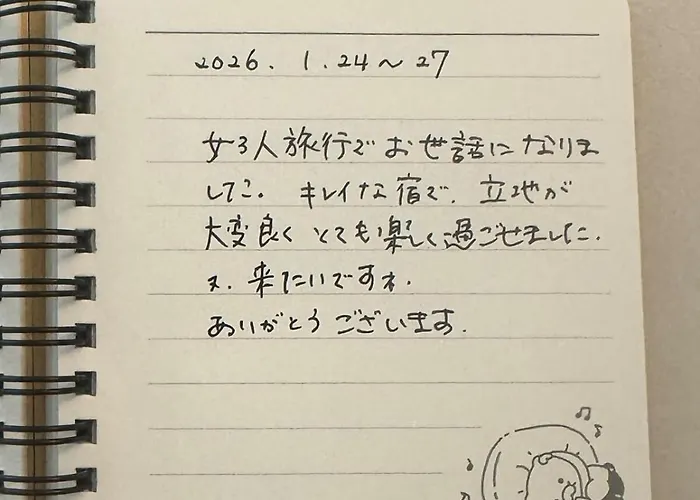 2026. 1.24〜27
女3人旅行でお世話になりま
した。キレイな宿で、立地が
大変良くとても楽しく過ごせました.
又、来たいですネ.
ありがとうございます.